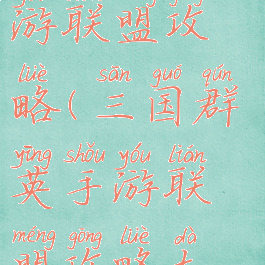 游联盟攻
lüè sān guó qún
略(三国群
yīng shǒu yóu lián
英手游联
méng gōng lüè dà
盟攻略大